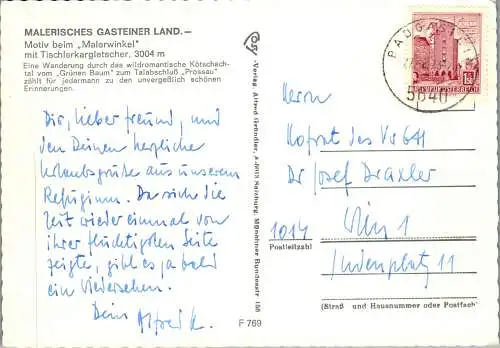 MALERISCHES GASTEINER LAND.—
Motiv beim „Malerwinkel"
mit Tischlerkargletscher, 3004 m
Eine Wanderung durch das wildromantische Kötschach-
tal vom „Grünen Baum" zum Talabschluß „Prossau"
zählt für jedermann zu den unvergeßlich schönen
Erinnerungen.
Dir, lieber freund, und
den Deinen herzliche
Urlaubsgrüße aus unserem
Refugium. Da sich die
Zeit wieder einmal von
ihrer flüchtigsten Seite
zeigte, gibt es ja bald
ein Wiedersehen.
Dein Alfred K.
F 769
-Verlag, Alfred Gründler, A-5013 Salzburg, Münchner Bundesstr. 156
BADGASTEIN
5640
1.50
REPUBLIK ÖSTERREICH
Herrn
Hofrat des VwGH
Dr Josef Draxler
1014 Wien 1
Postleitzahl
Judenplatz 11
(Straß und Hausnummer oder Postfach)